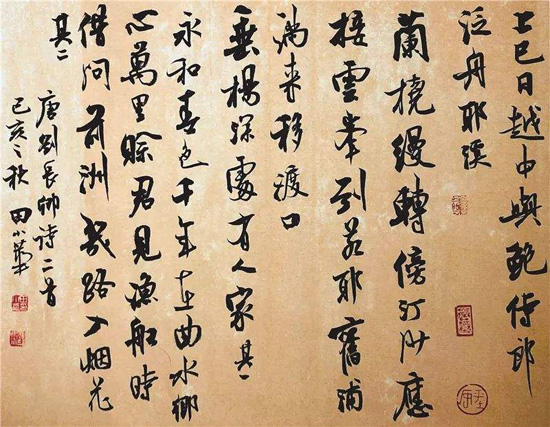 上巳日越中與鮑侍郎
泛舟耶溪
蘭橈縵轉傍汀沙應
接雲峯到若耶舊浦
满来移渡口
垂楊深處有人家 其一
永和春色千年在曲水鄉
心萬里賒君見漁船時
借問前洲幾路入烟花
其二
唐劉長卿詩二首
己亥之秋 田小